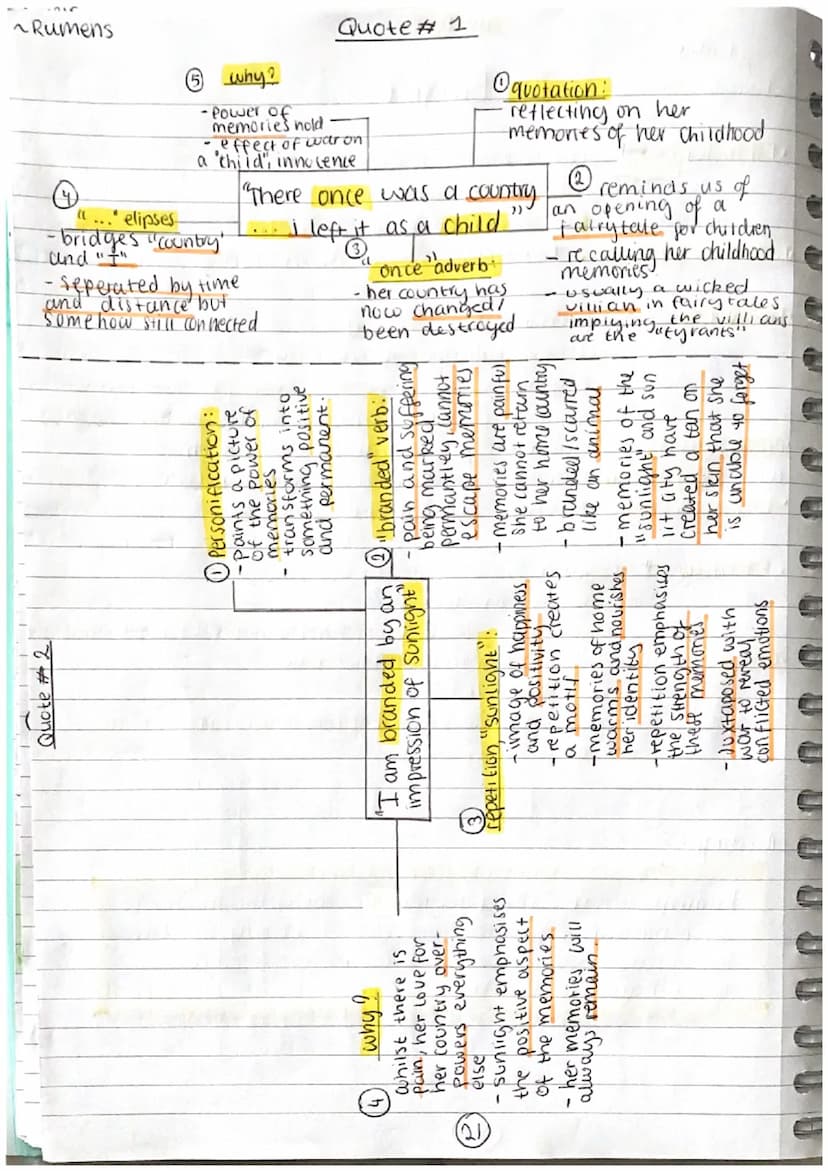 ~Rumens
Quote # 1
① quotation:
reflecting on her
memories of her childhood
"There once was a country
... I left it as a child"
② reminds us of
an opening of a
fairytale for children
- recalling her childhood
memories
- usually a wicked
villian in fairytales
implying the villians
are the "tyrants"
③
"once" adverb:
- her country has
now changed/
been destroyed
④
"..." elipses
- bridges "country"
and "I"
- seperated by time
and distance but
somehow still connected
⑤ why?
- power of
memories hold
- effect of war on
a "child", innocence
Quote # 2
"I am branded by an
impression of sunlight"
① Personification:
- Paints a picture
of the power of
memories
- transforms into
something positive
and permanent.
② "branded" verb:
- pain and suffering
being marked
permantley, cannot
escape memories
- memories are painful
she cannot return
to her home country
- branded/scarred
like an animal
- memories of the
"sunlight" and sun
lit city have
created a tan on
her skin that she
is unable to forget
③ repetition "sunlight":
- image of happiness
and positivity
- repetition creates
a motif
- memories of home
warms and nourishes
her identity
- repetition emphasises
the strength of
these memories
- Juxtaposed with
war to reveal
conflicted emotions
④ why?
whilst there is
pain, her love for
her country over-
powers everything
else
- sunlight emphasises
the positive aspect
of the memories.
- her memories will
always remain.
21